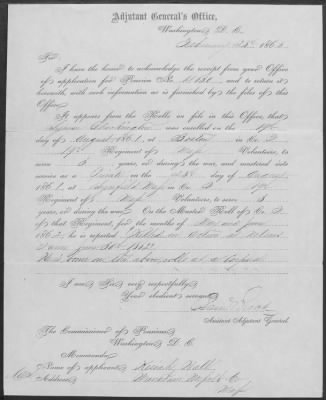 Adjutant General's Office,
Washington D. C.
February 186
Sir:
I have the honor to acknowledge the receipt from your Office
of application for Pension No. and to return it
herewith, with such information as is furnished by the files of this
Office.
It appears from the Rolls on file in this Office, that
was enrolled on the 19th
day of August 1861, at Boston in Co.
19th Regiment of Mass Volunteers, to
serve 3 years, or during the war, and mustered into
service as a Private on the 28 day of August,
1861, at Mass in Co. 19th
Regiment of Mass Volunteers, to serve 3
years, or during the war. On the Muster Roll of Co.
of that Regiment, for the months of May and June,
1862, he is reported Killed in Action at
June 30th 1862
on the above rolls as a Corporal
I am Sir very respectfully
Your obedient servant,
Assistant Adjutant General
The Commissioner of Pensions
Washington D. C.
Memoranda
Name of applicant,
Address, Co
Mass